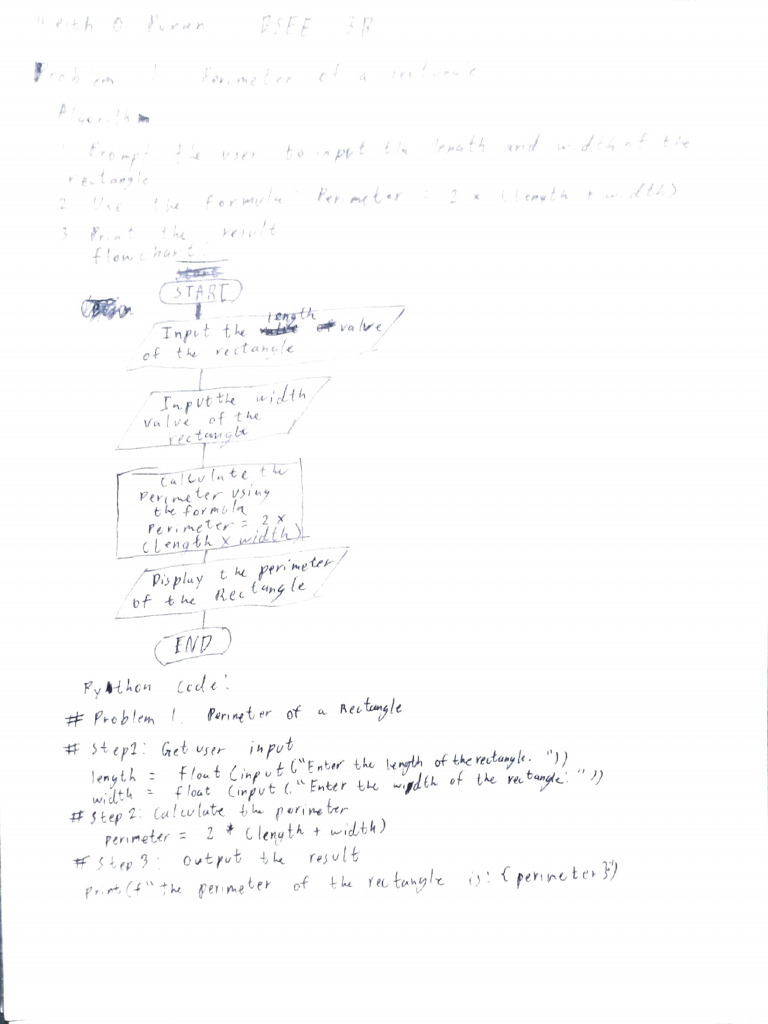 Keith O BSEE 3B
Problem 1. Perimeter of a rectangle
Algorithm
1 Prompt the user to input the length and width of the
rectangle
2 Use the formula: Perimeter = 2 x (length + width)
3 Print the result
flowchart:
start
START
Input the length value
of the rectangle
Input the width
value of the
rectangle
Calculate the
Perimeter using
the formula
Perimeter = 2 x
(length x width)
Display the perimeter
of the Rectangle
END
Python code:
# Problem 1. Perimeter of a Rectangle
# Step1: Get user input
length = Float (input ("Enter the length of the rectangle. "))
width = float (input (."Enter the width of the rectangle: "))
# Step 2: Calculate the perimeter
perimeter = 2 * (length + width)
# Step 3: output the result
print (f" the perimeter of the rectangle is: {perimeter}")